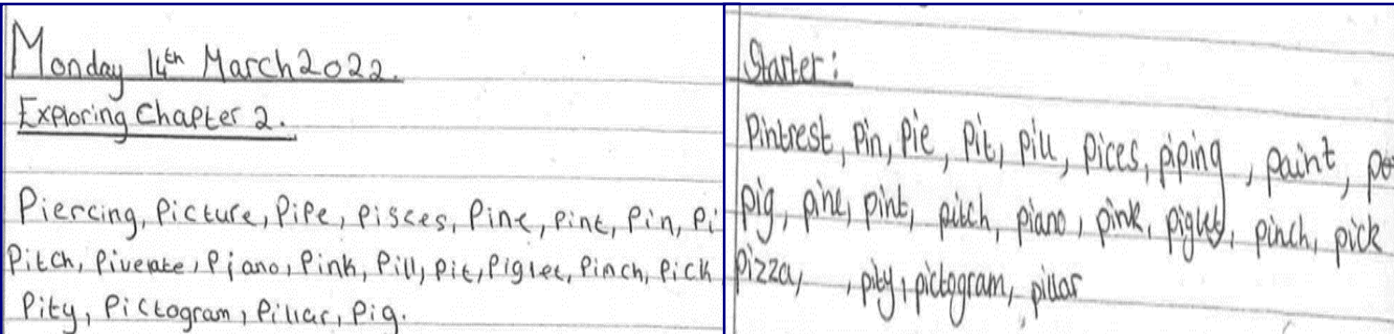 Monday 14th March 2022.
Exploring Chapter 2.
Piercing, Picture, Pipe, Pisces, Pine, Pint, Pin, Pi
Pitch, Piverate, Piano, Pink, Pill, Pit, Piglet, Pinch, Pick
Pity, Pictogram, Pillar, Pig.
Starter:
Pintrest, pin, pie, pit, pill, pices, piping, paint,
pig, pine, pint, pitch, piano, pink, piglet, pinch, pick
pizza, , pity, pictogram, pillar